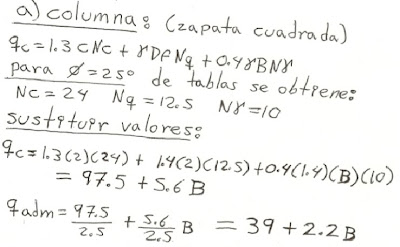 a) columna: (zapata cuadrada)
qc = 1.3 cNc + γDfNq + 0.4γBNγ
para Ø = 25° de tablas se obtiene:
Nc = 24 Nq = 12.5 Nγ = 10
sustituir valores:
qc = 1.3(2)(24) + 1.4(2)(12.5) + 0.4(1.4)(B)(10)
= 97.5 + 5.6 B
qadm = 97.5/2.5 + 5.6/2.5 B = 39 + 2.2 B